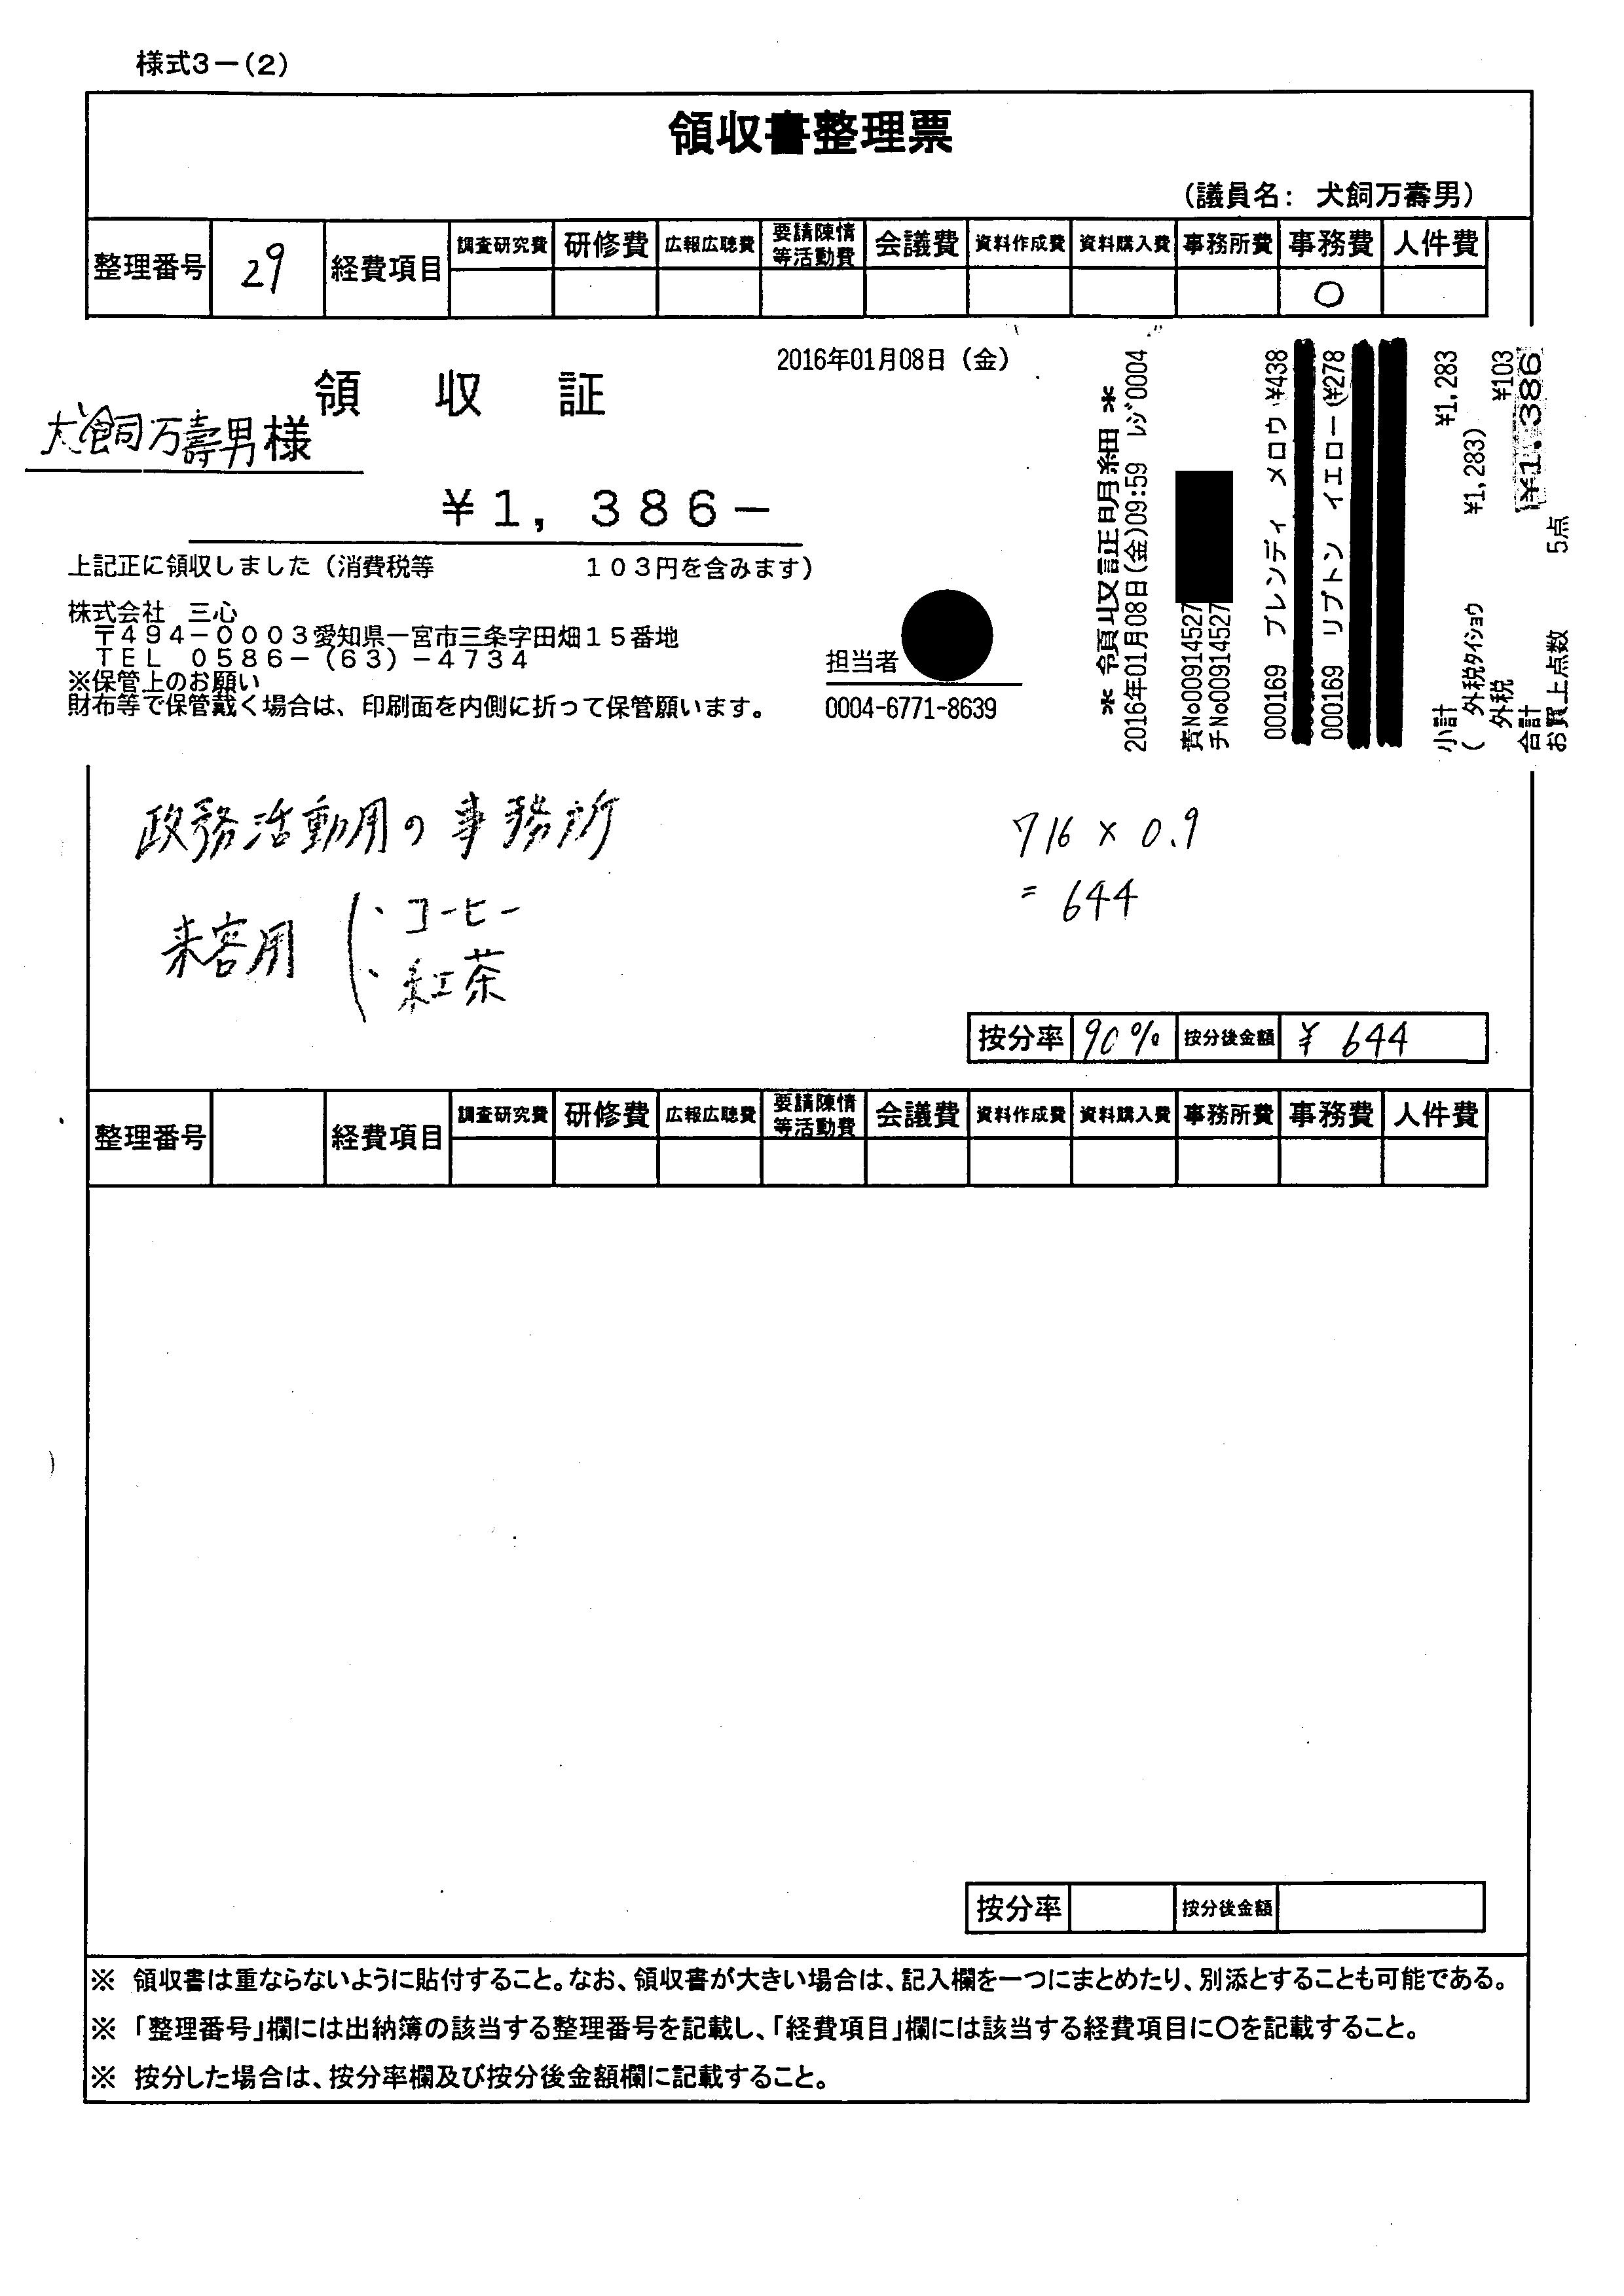 様式3－(2)
領収書整理票
(議員名: 犬飼万壽男)
整理番号 29 経費項目 調査研究費 研修費 広報広聴費 要請陳情等活動費 会議費 資料作成費 資料購入費 事務所費 事務費 人件費
○
2016年01月08日 (金)
領 収 証
犬飼万壽男様
¥1, 386－
上記正に領収しました (消費税等 103円を含みます)
株式会社 三心
〒494-0003愛知県一宮市三条字田畑15番地
TEL 0586-(63)-4734
※保管上のお願い
財布等で保管戴く場合は、印刷面を内側に折って保管願います。
担当者
0004-6771-8639
** 領収証明細 **
2016年01月08日(金)09:59 ﾚｼﾞ0004
責No00914527
チNo00914527
000169 ブレンディ メロウ ¥438
000169 リプトン イエロー (¥278
小計 ¥1,283
( 外税ﾀｲｼｮｳ ¥1,283)
外税 ¥103
合計 ¥1,386
お買上点数 5点
政務活動用の事務所
来客用 ( ・コーヒー
・紅茶
716 × 0.9
= 644
按分率 90% 按分後金額 ¥ 644
整理番号 経費項目 調査研究費 研修費 広報広聴費 要請陳情等活動費 会議費 資料作成費 資料購入費 事務所費 事務費 人件費
按分率 按分後金額
※ 領収書は重ならないように貼付すること。なお、領収書が大きい場合は、記入欄を一つにまとめたり、別添とすることも可能である。
※ 「整理番号」欄には出納簿の該当する整理番号を記載し、「経費項目」欄には該当する経費項目に○を記載すること。
※ 按分した場合は、按分率欄及び按分後金額欄に記載すること。